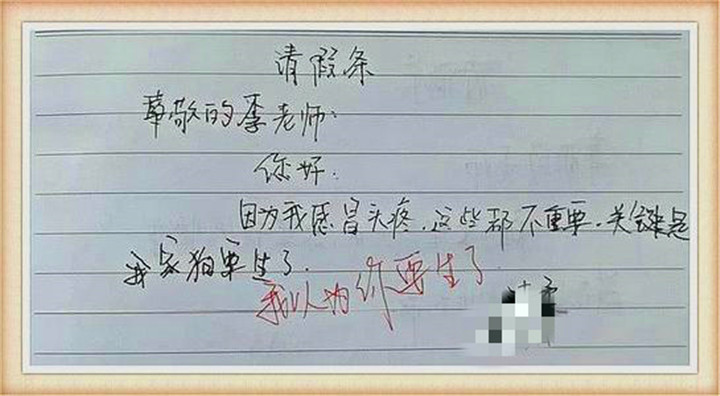 请假条
尊敬的李老师:
你好:
因为我感冒头疼,这些都不重要.关键是
我家狗要生了.
我以为你要生了